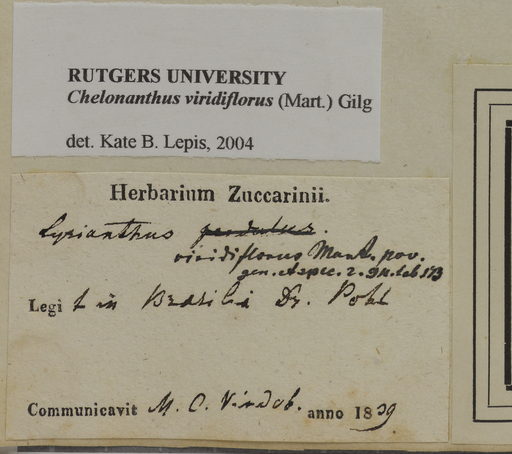 RUTGERS UNIVERSITY
Chelonanthus viridiflorus (Mart.) Gilg
det. Kate B. Lepis, 2004
Herbarium Zuccarinii.
Lysianthus pendulus.
viridiflorus Mart. nov.
gen. et spec. 2. 94. tab 173
Legit in Brasilia Dr. Pohl
Communicavit M. C. Vindob. anno 1839